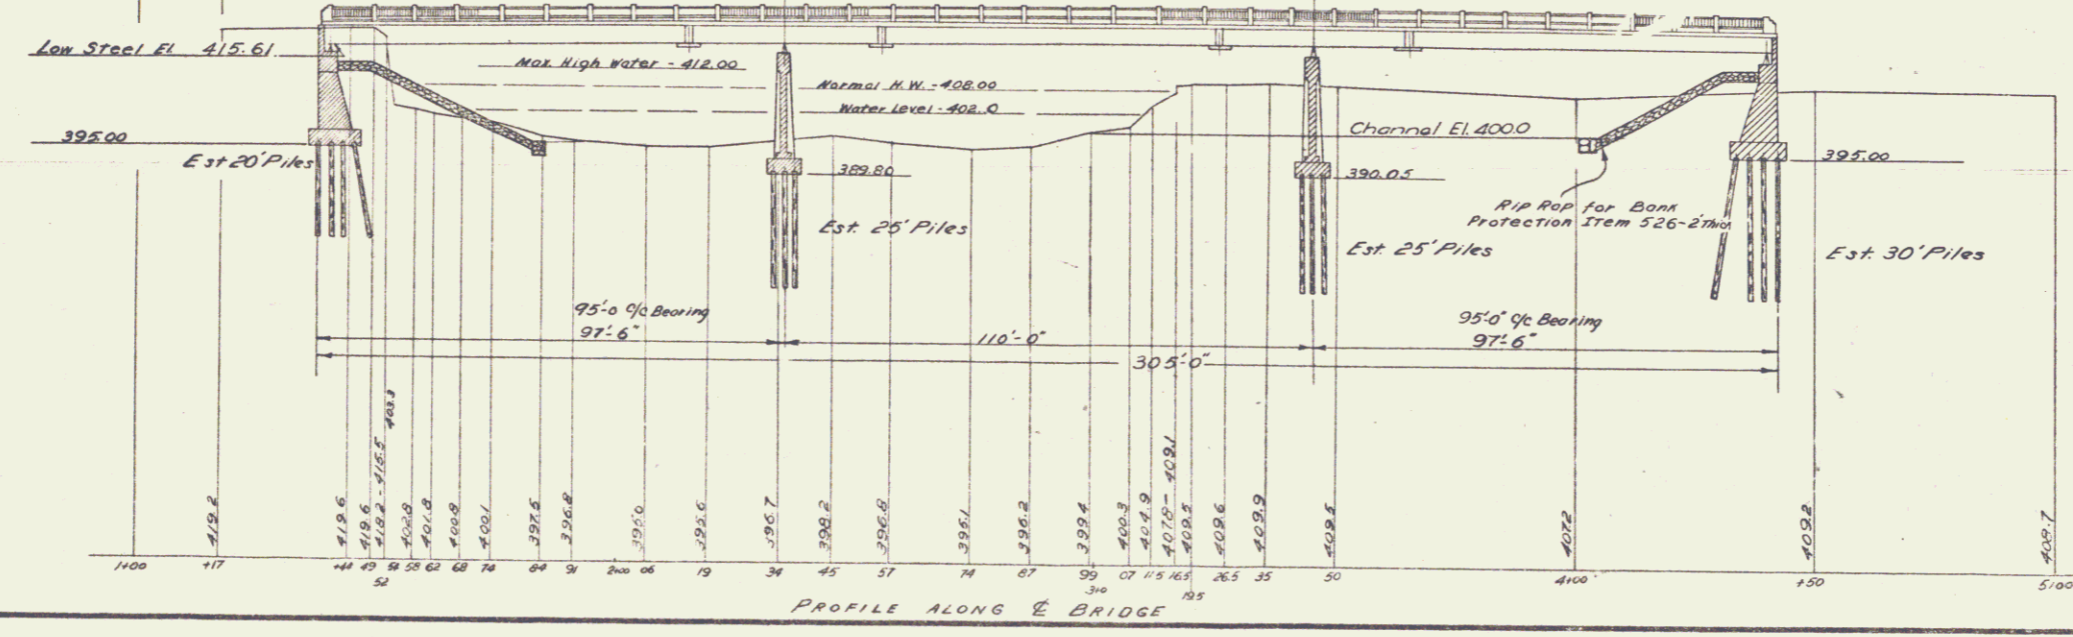 Low Steel El. 415.61
Max. High Water - 412.00
Normal H.W. - 408.00
Water Level - 402.0
Channel El. 400.0
395.00
Est 20' Piles
389.80
390.05
395.00
Rip Rap for Bank
Protection Item 526-2' Thick
Est. 25' Piles
Est. 25' Piles
Est. 30' Piles
95'-0 c/c Bearing
97'-6"
110'-0"
95'-0" c/c Bearing
97'-6"
305'-0"
419.2
419.6
419.6
418.2 - 415.5
403.3
402.8
401.8
400.8
400.1
397.5
396.8
395.0
395.6
396.7
398.2
396.8
395.1
396.2
399.4
400.3
404.9
407.8 - 409.1
409.5
409.6
409.9
409.5
407.2
409.2
408.7
1+00 +17 +44 49 54 58 62 68 74 84 91 2+00 06 19 34 45 57 74 87 99 07 11.5 16.5 26.5 35 50 4+00 +50 5+00
52 3+0 19.5
PROFILE ALONG ℄ BRIDGE